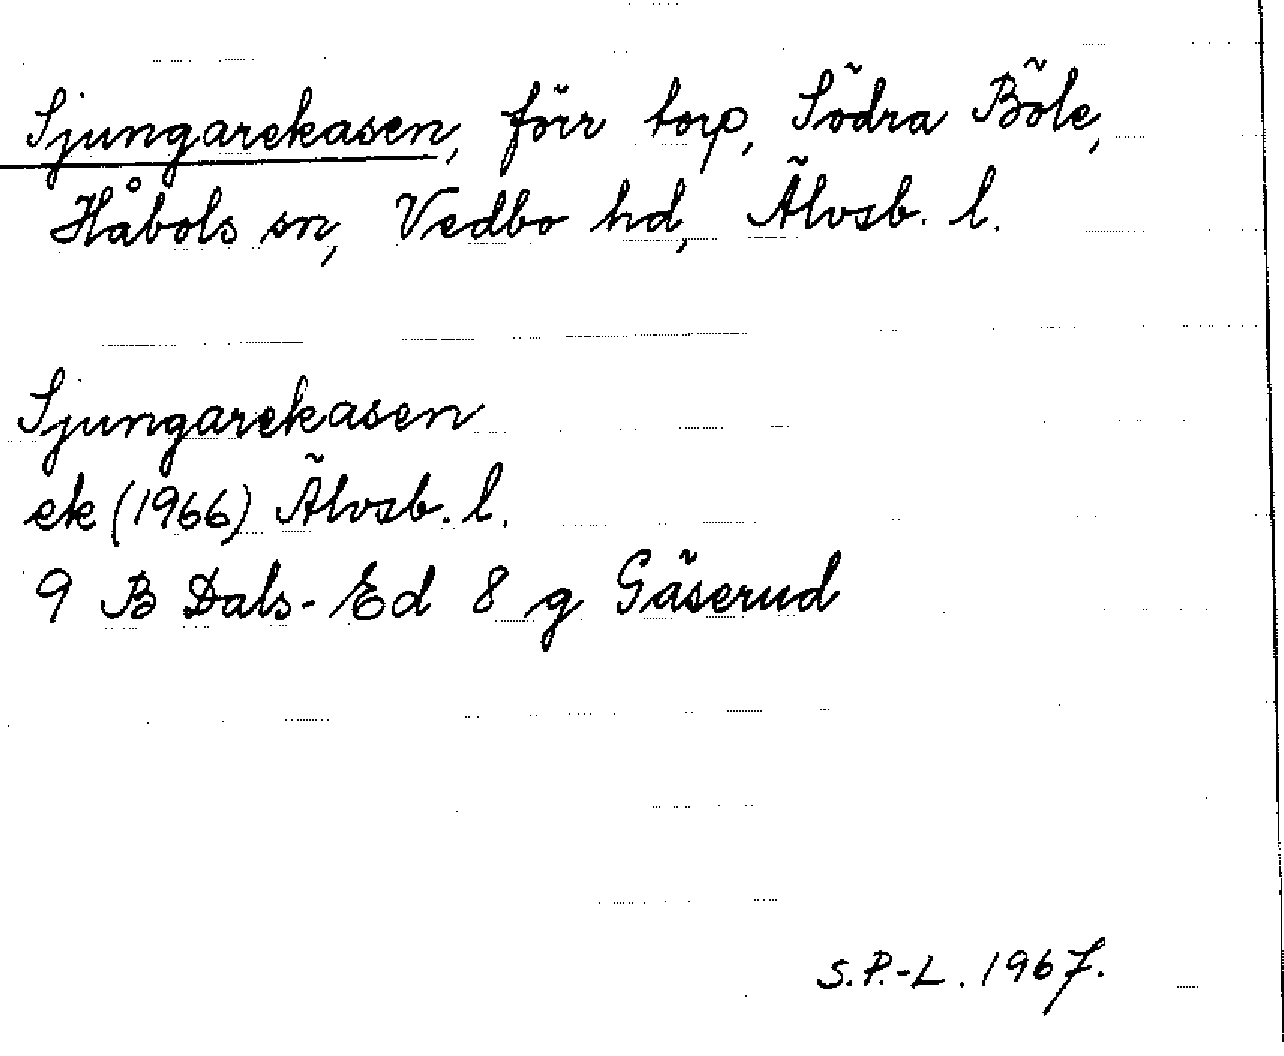 Sjungarekasen, förr torp, Södra Böle,
Håbols sn, Vedbo hd, Älvsb. l.
Sjungarekasen
ek (1966) Älvsb. l.
9 B Dals-Ed 8 g Gäserud
S.P.-L. 1967.